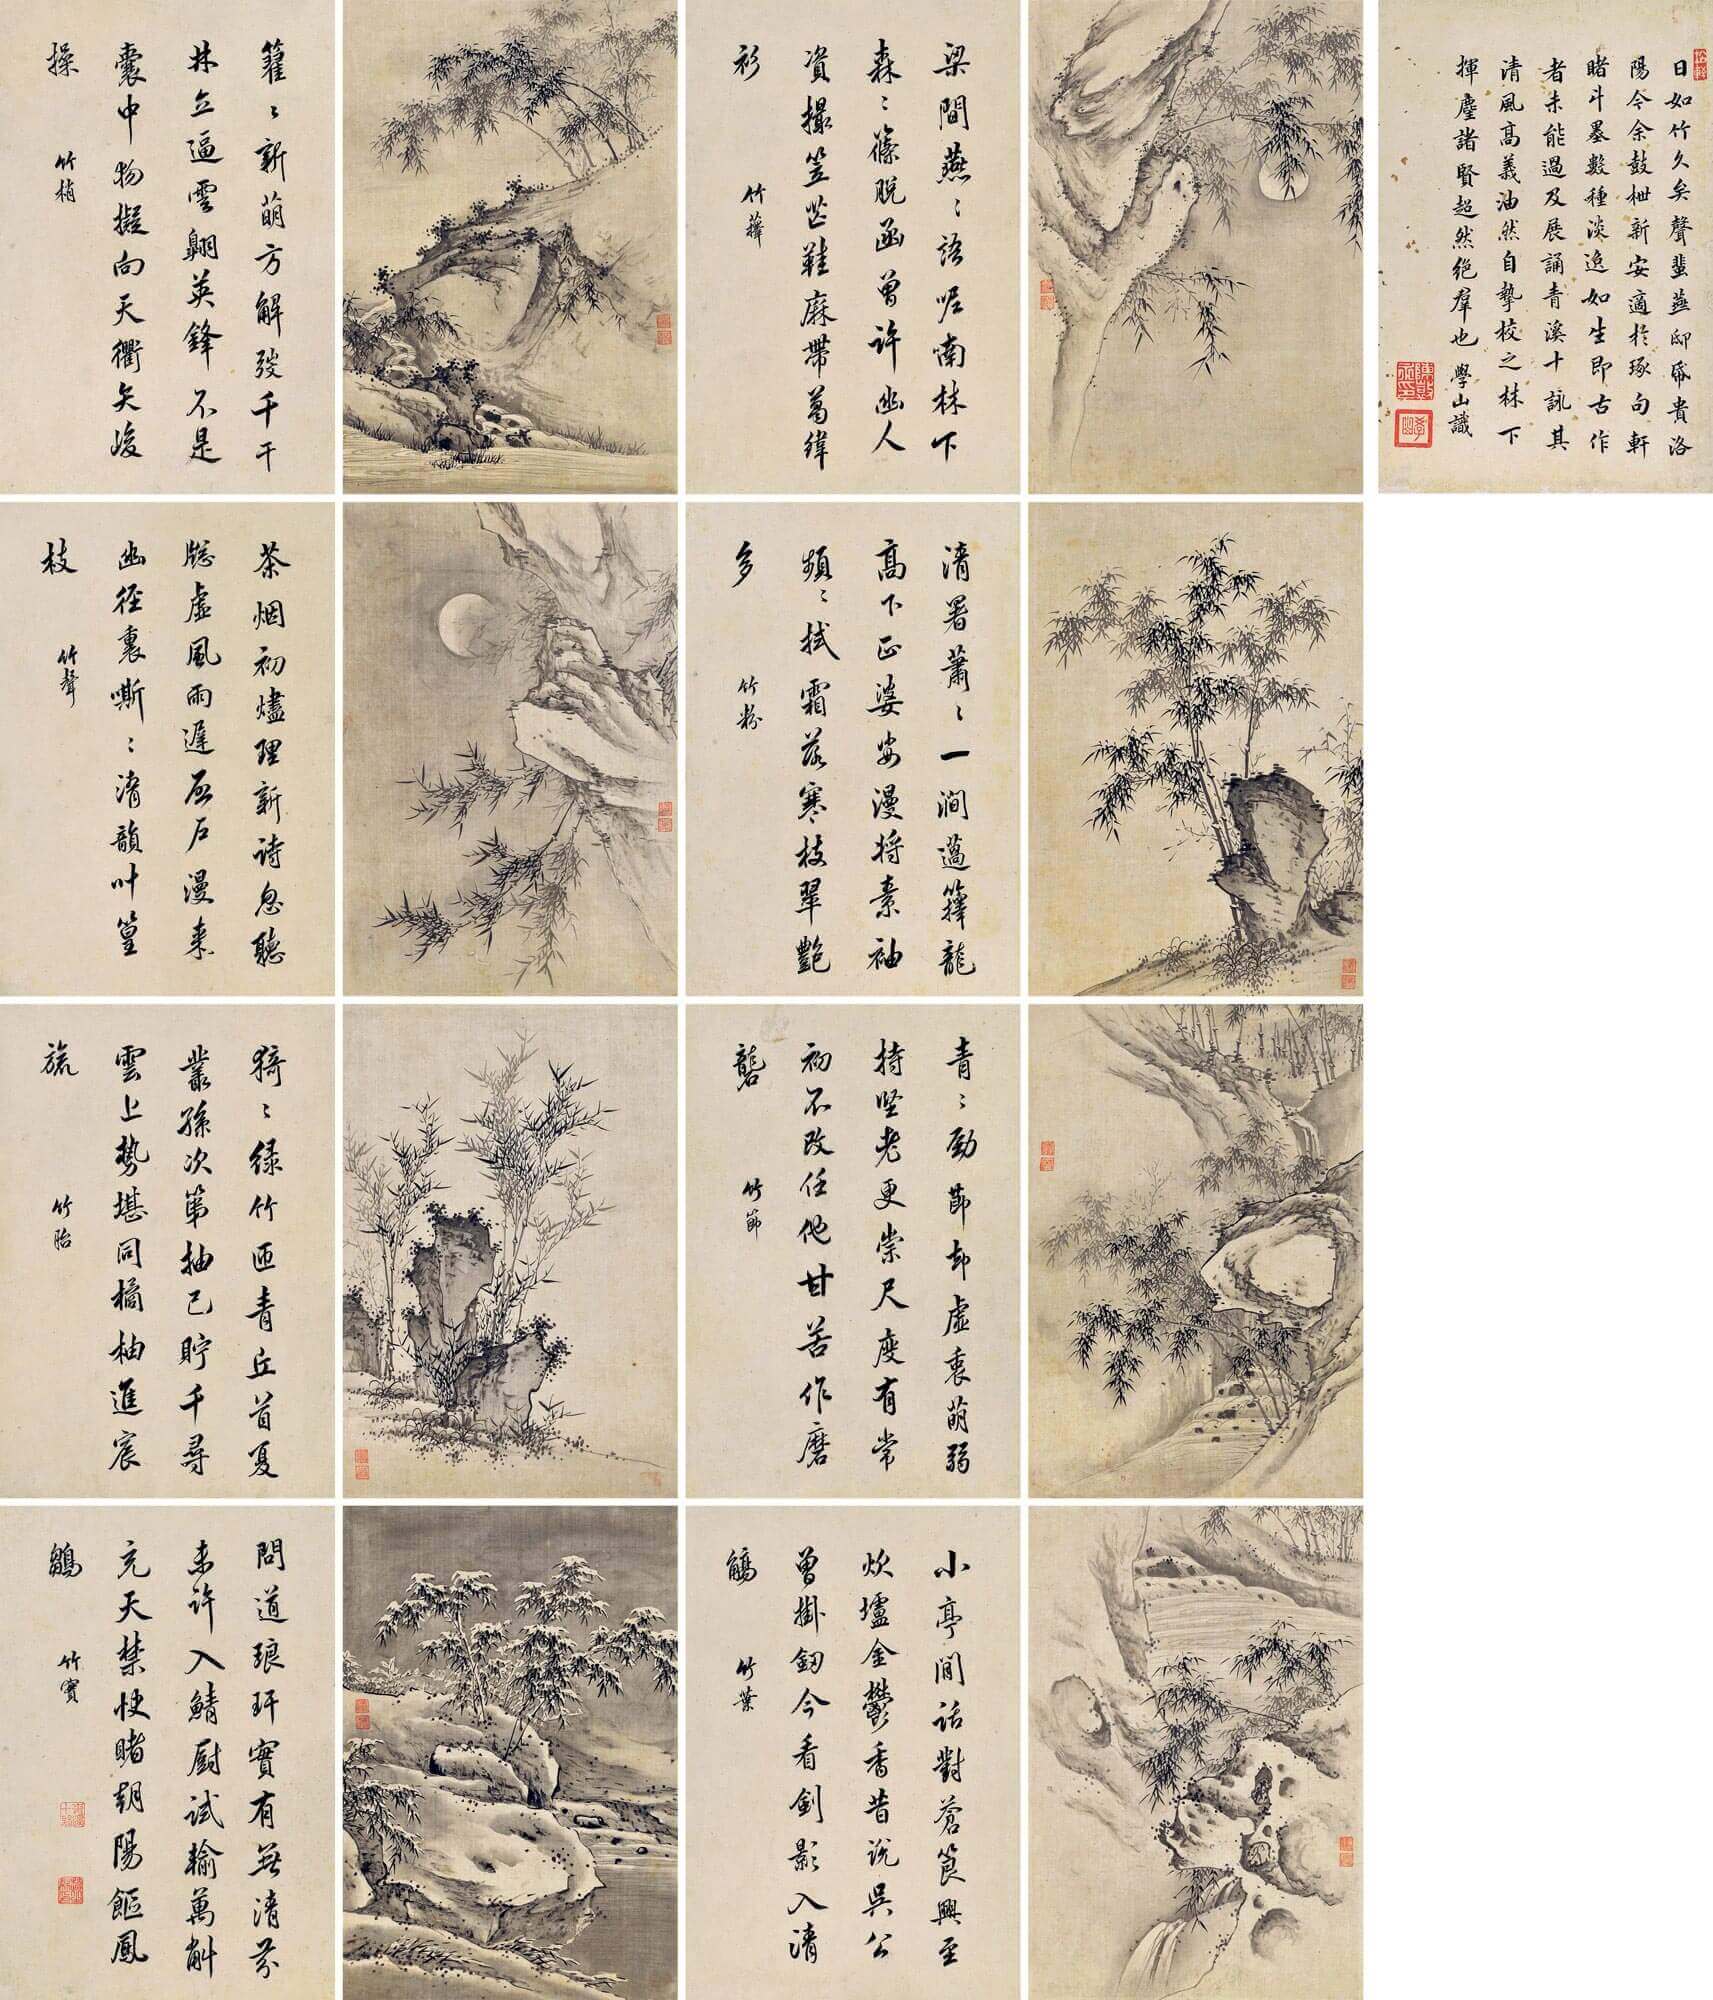 日如竹久矣聲蜚燕邸帋貴洛
陽今余鼓枻新安適於琢句軒
睹斗墨數種淡逸如生即古作
者未能過及展誦青溪十詠其
清風高義油然自摯校之林下
揮麈諸賢超然絶羣也 學山識
梁間燕〻語呢喃林下
森〻籜脱函曾許幽人
資撮笠芒鞋麻帶葛絳
衫
竹籜
籊〻新萌方解發千干
林立逼雲翺英鋒不是
囊中物擬向天衢矢峻
操
竹梢
清署蕭〻一澗邁籜龍
高下正婆娑漫將素袖
頻〻拭霜蕊寒枝翠艷
多
竹粉
茶烟初燼理新詩忽聽
牕虛風雨遲啟户漫來
幽徑裏嘶〻清韻叶篁
枝
竹聲
青〻勁節却虛衷萌弱
持堅老更崇尺度有常
初不改任他甘苦作磨
礱
竹節
猗〻緑竹匝青丘首夏
叢孫次第抽已貯千尋
雲上勢堪同橘柚進宸
旒
竹胎
小亭閒話對蒼筤興至
炊壚金鬱香昔説吳公
曾掛劒今看劍影入清
觴
竹葉
問道琅玕實有無清芬
未許入鯖厨試輸萬斛
充天禁快睹朝陽飫鳳
鶵
竹實